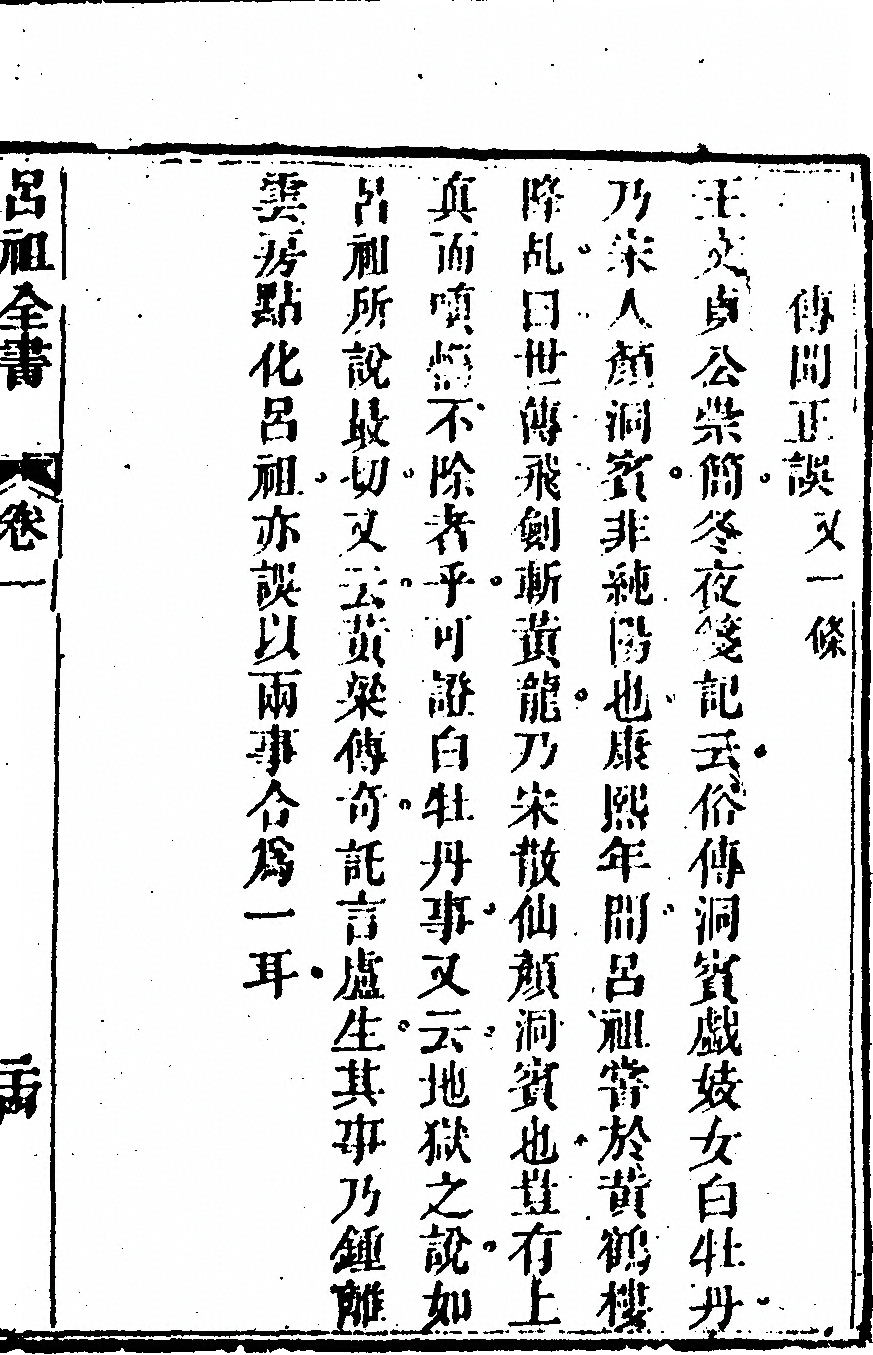 傳聞正誤 又一條
王文貞公崇簡冬夜箋記云俗傳洞賓戲妓女白牡丹
乃宋人顏洞賓非純陽也康熙年間呂祖嘗於黃鶴樓
降乩曰世傳飛劍斬黃龍乃宋散仙顏洞賓也豈有上
真而嗔癡不除者乎可證白牡丹事又云地獄之說如
呂祖所說最切又云黃粱傳奇託言盧生其事乃鍾離
雲房點化呂祖亦誤以兩事合為一耳
呂祖全書 卷一